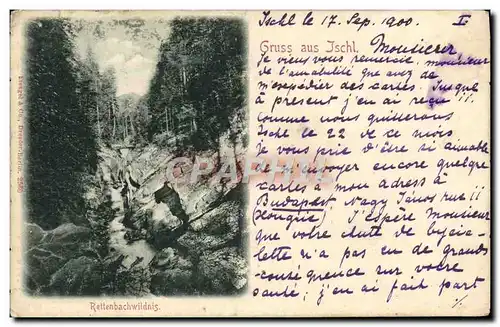 Ischl le 17. Sep. 1900. I.
Gruss aus Ischl.
Monsieur
Je viens vous remercier, monsieur
de l'amabilité que avez de
m'expédier des cartes. Jusque
à présent j'en ai reçu 11.
Comme nous quitterons
Ischl le 22 de ce mois
Je vous prie d'être si aimable
m'envoyer encore quelque
cartes à mon adress à
Budapest Nagy János rue 11
(Hongrie). J'espère Monsieur
que votre chute de bycic-
lette n'a pas eu de grands
conséquence sur votre
santé, j'en ai fait part
Rettenbachwildnis.
CPARAMA